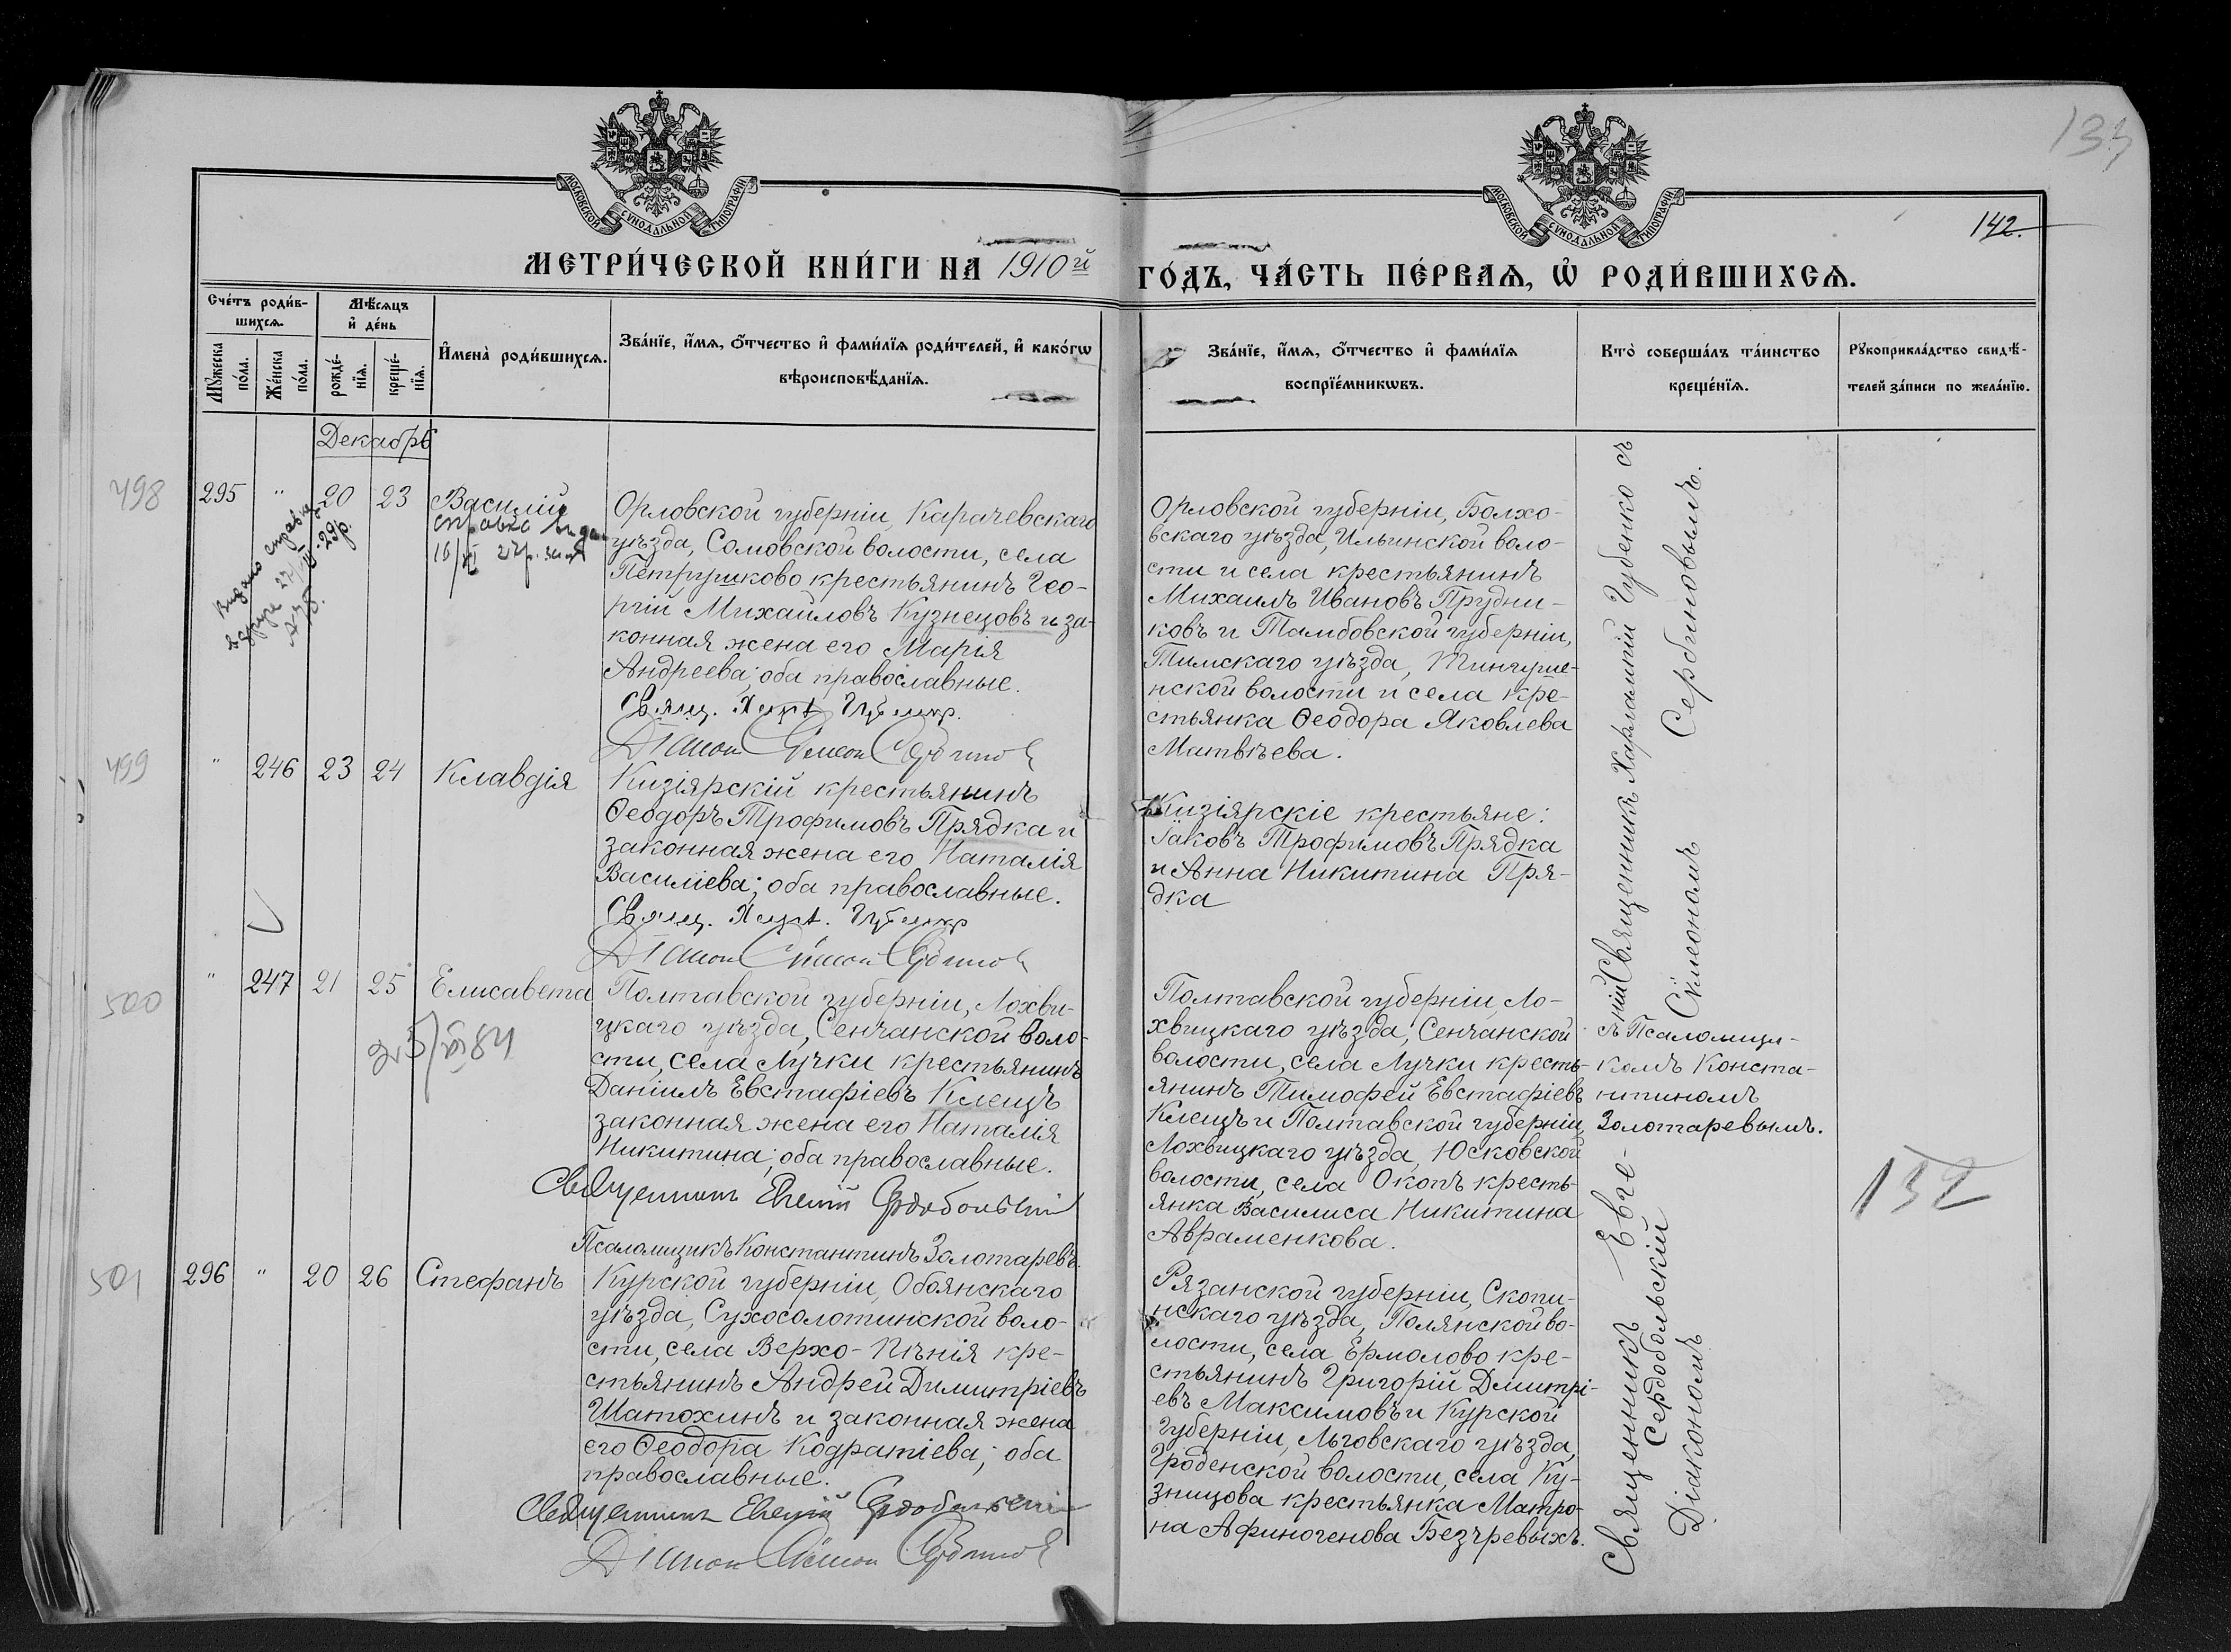 133
142.
МОСКОВСКОЙ СУНОДАЛЬНОЙ ТИПОГРАФІИ
МОСКОВСКОЙ СУНОДАЛЬНОЙ ТИПОГРАФІИ
МЕТРИ́ЧЕСКОЙ КНИ́ГИ НА 1910й ГО́ДЪ, ЧА́СТЬ ПЕ́РВАѦ, Ѡ҆ РОДИ́ВШИХСѦ.
Сче́тъ роди́в-
шихсѧ.
Мꙋжеска
по́ла.
Же́нска
по́ла.
Мѣ́сѧцъ
и҆ де́нь
рожде́-
нїѧ.
креще́-
нїѧ.
И҆мена̀ роди́вшихсѧ.
Зва́нїе, и҆́мѧ, ѻ҆́тчество и҆ фами́лїѧ роди́телей, и҆ како́гѡ
вѣроисповѣ́данїѧ.
Зва́нїе, и҆́мѧ, ѻ҆́тчество и҆ фами́лїѧ
воспрїе́мникѡвъ.
Кто̀ соверша́лъ та́инство
креще́нїѧ.
Рꙋкоприкла́дство свидѣ́-
телей за́писи по жела́нїю.
Декабрь
498
295 " 20 23 Василій
справка выдан
16/XI 27г.
Выдано справка
Орловской губерніи, Карачевскаго
уѣзда, Сомовской волости, села
Петрушково крестьянинъ Гео-
ргій Михайловъ Кузнецовъ и за-
конная жена его Марія
Андреева; оба православные.
Свящ. Харл. Губенко.
Діаконъ Сѵмеонъ Сербиновъ
Орловской губерніи, Болхо-
вскаго уѣзда, Ильинской воло-
сти и села крестьянинъ
Михаилъ Ивановъ Прудни-
ковъ и Тамбовской губерніи,
Тимскаго уѣзда, Тингуше-
нской волости и села кре-
стьянка Ѳеодора Яковлева
Матвѣева.
Священникъ Харлампій Губенко съ
Діакономъ Сѵмеономъ Сербиновымъ.
499
" 246 23 24 Клавдія
Кизіярскій крестьянинъ
Ѳеодоръ Трофимовъ Прядка и
законная жена его Наталія
Василіева; оба православные.
Свящ. Харл. Губенко
Діаконъ Сѵмеонъ Сербиновъ
Кизіярскіе крестьяне:
Іаковъ Трофимовъ Прядка
и Анна Никитина Пря-
дка
500
" 247 21 25 Елисавета
Полтавской губерніи, Лохви-
цкаго уѣзда, Сенчанской воло-
сти, села Лучки крестьянинъ
Даніилъ Евстафіевъ Клещъ
законная жена его Наталія
Никитина; оба православные.
Священникъ Евгеній Сердобольскій
Псаломщикъ Константинъ Золотаревъ.
Полтавской губерніи, Ло-
хвицкаго уѣзда, Сенчанской
волости, села Лучки кресть-
янинъ Тимофей Евстафіевъ
Клещъ и Полтавской губерніи,
Лохвицкаго уѣзда, Юсковской
волости, села Окопъ кресть-
янка Василиса Никитина
Авраменкова.
Священникъ Евге-
ній
Сердобольскій
съ Псаломщи-
комъ Конста-
нтиномъ
Золотаревымъ.
132
501
296 " 20 26 Стефанъ
Курской губерніи, Обоянскаго
уѣзда, Сухосолотинской воло-
сти, села Верхо-Пѣнія кре-
стьянинъ Андрей Димитріевъ
Шатохинъ и законная жена
его Ѳеодора Кодратіева; оба
православные.
Священникъ Евгеній Сердобольскій
Діаконъ Сѵмеонъ Сербиновъ
Рязанской губерніи, Скопи-
нскаго уѣзда, Полянской во-
лости, села Ермолово кре-
стьянинъ Григорій Дмитрі-
евъ Максимовъ и Курской
губерніи, Льговскаго уѣзда,
Гроденской волости, села Ку-
знецова крестьянка Матро-
на Афиногенова Безчревыхъ.